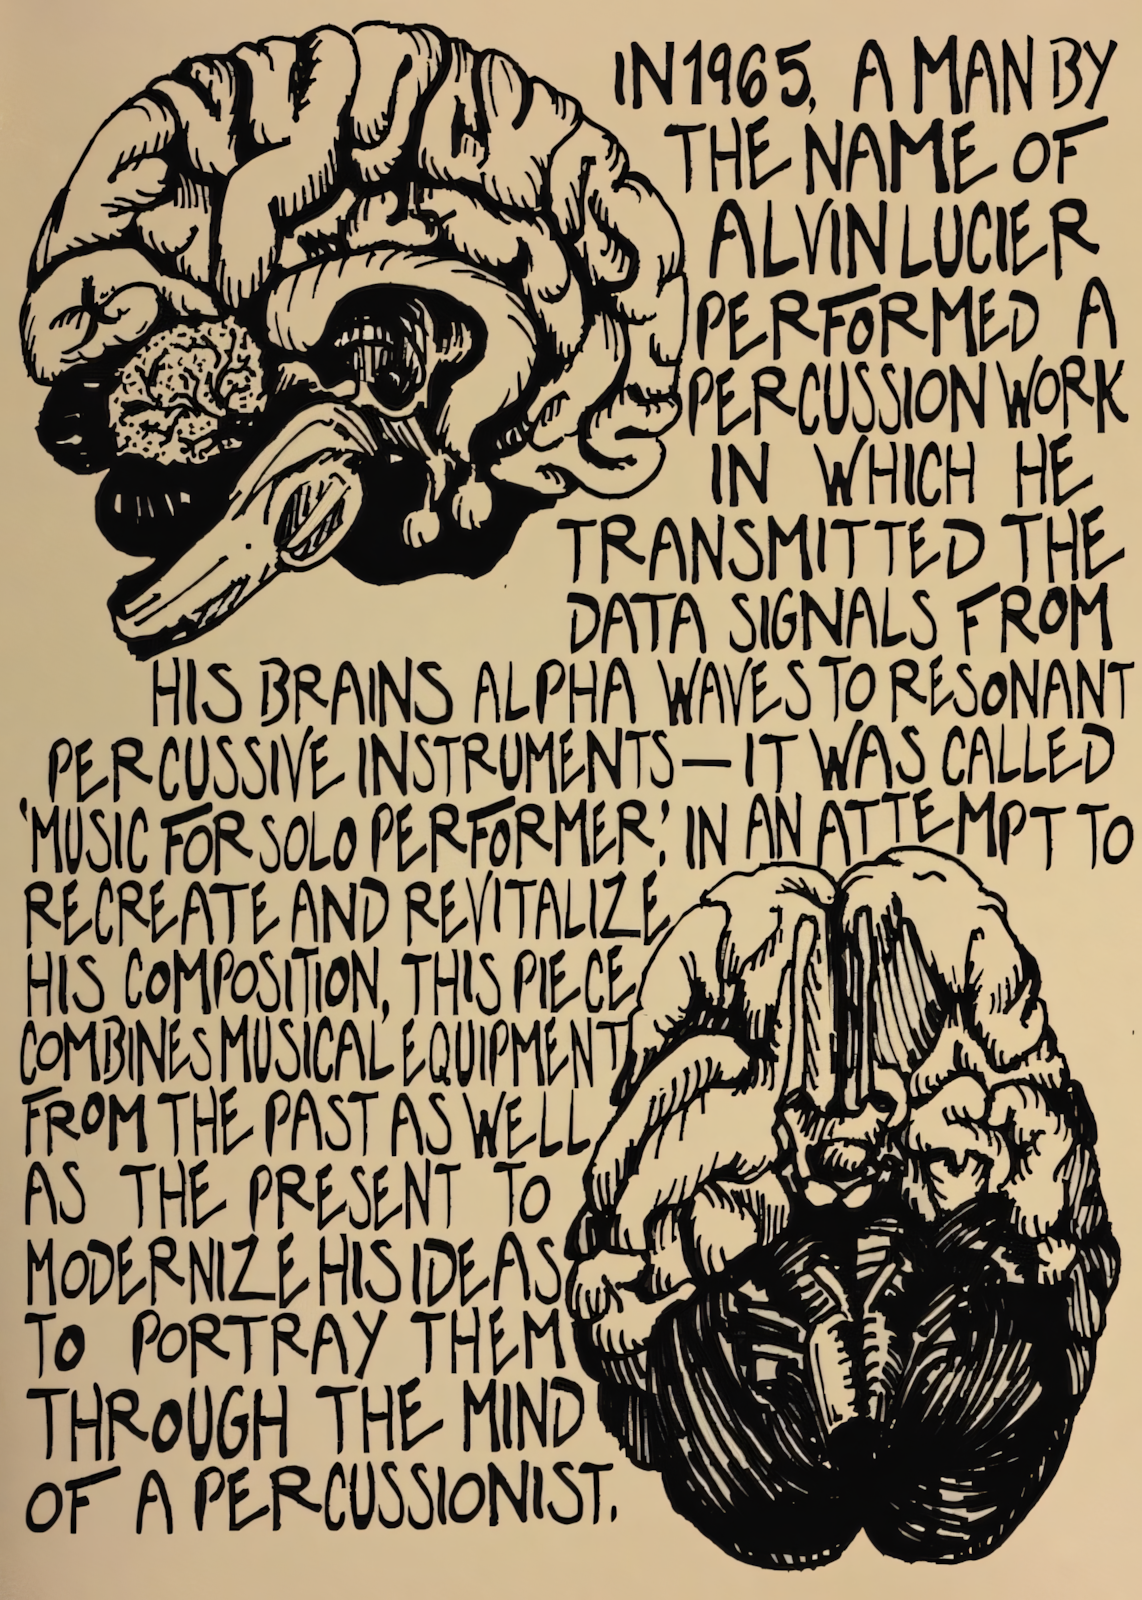 IN 1965, A MAN BY
THE NAME OF
ALVIN LUCIER
PERFORMED A
PERCUSSION WORK
IN WHICH HE
TRANSMITTED THE
DATA SIGNALS FROM
HIS BRAINS ALPHA WAVES TO RESONANT
PERCUSSIVE INSTRUMENTS — IT WAS CALLED
'MUSIC FOR SOLO PERFORMER.' IN AN ATTEMPT TO
RECREATE AND REVITALIZE
HIS COMPOSITION, THIS PIECE
COMBINES MUSICAL EQUIPMENT
FROM THE PAST AS WELL
AS THE PRESENT TO
MODERNIZE HIS IDEAS
TO PORTRAY THEM
THROUGH THE MIND
OF A PERCUSSIONIST.